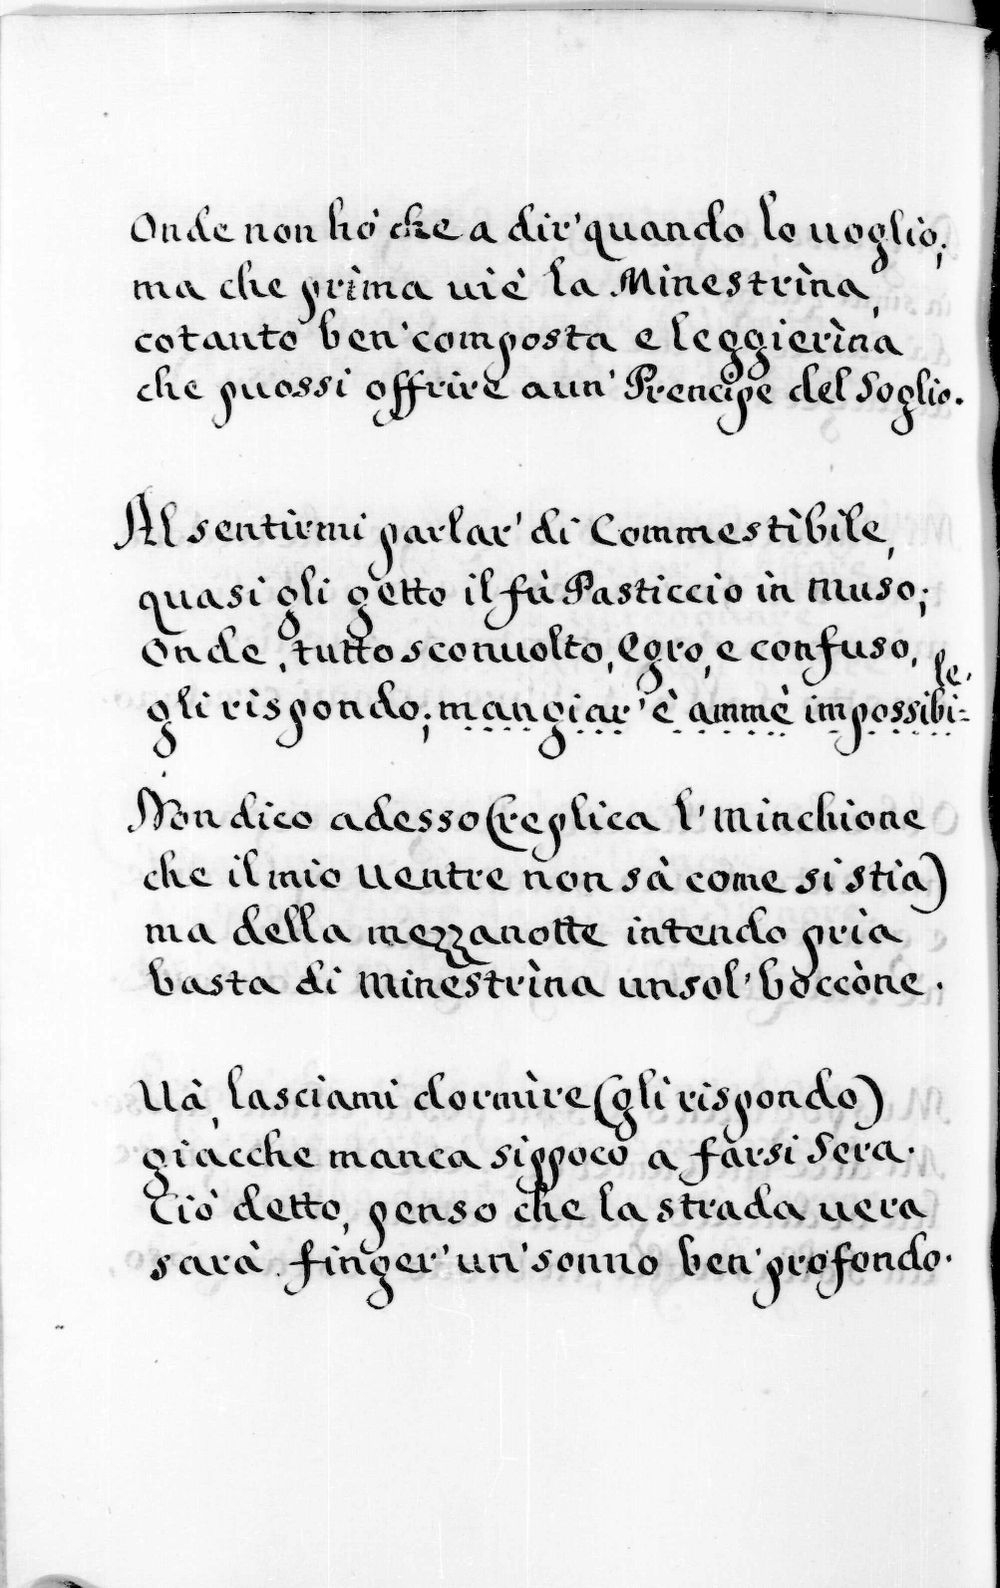 Onde non hò che a dir' quando lo uoglio;
ma che prìma uiè la Minestrìna,
cotanto ben' composta e leggierìna
che puossi offrire a un' Prencipe del Soglio.
Al sentirmi parlar' di Commestìbile,
quasi gli getto il fù Pasticcio in muso;
Onde, tutto sconuolto, Egro, e confuso,
gli rispondo; mangiar' è ammè impossibi=le.
Non dico adesso (replica l' Minchione
che il mio Uentre non sà come si stià)
ma della mezzanotte intendo prìa
basta di Minestrìna un sol' boccòne.
Uà, lasciami dormìre (gli rispondo)
giacche manca sippoco a farsi Sera.
Ciò detto, penso che la strada uera
sarà finger' un' sonno ben' profondo.